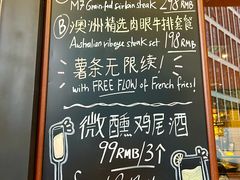 M7 Grain fed sirloin steak 298 RMB
Ⓑ澳洲精选肉眼牛排套餐
Australian ribeye steak set 198 RMB
薯条无限续!
with FREE FLOW of French fries!
微醺鸡尾酒
99RMB/3个